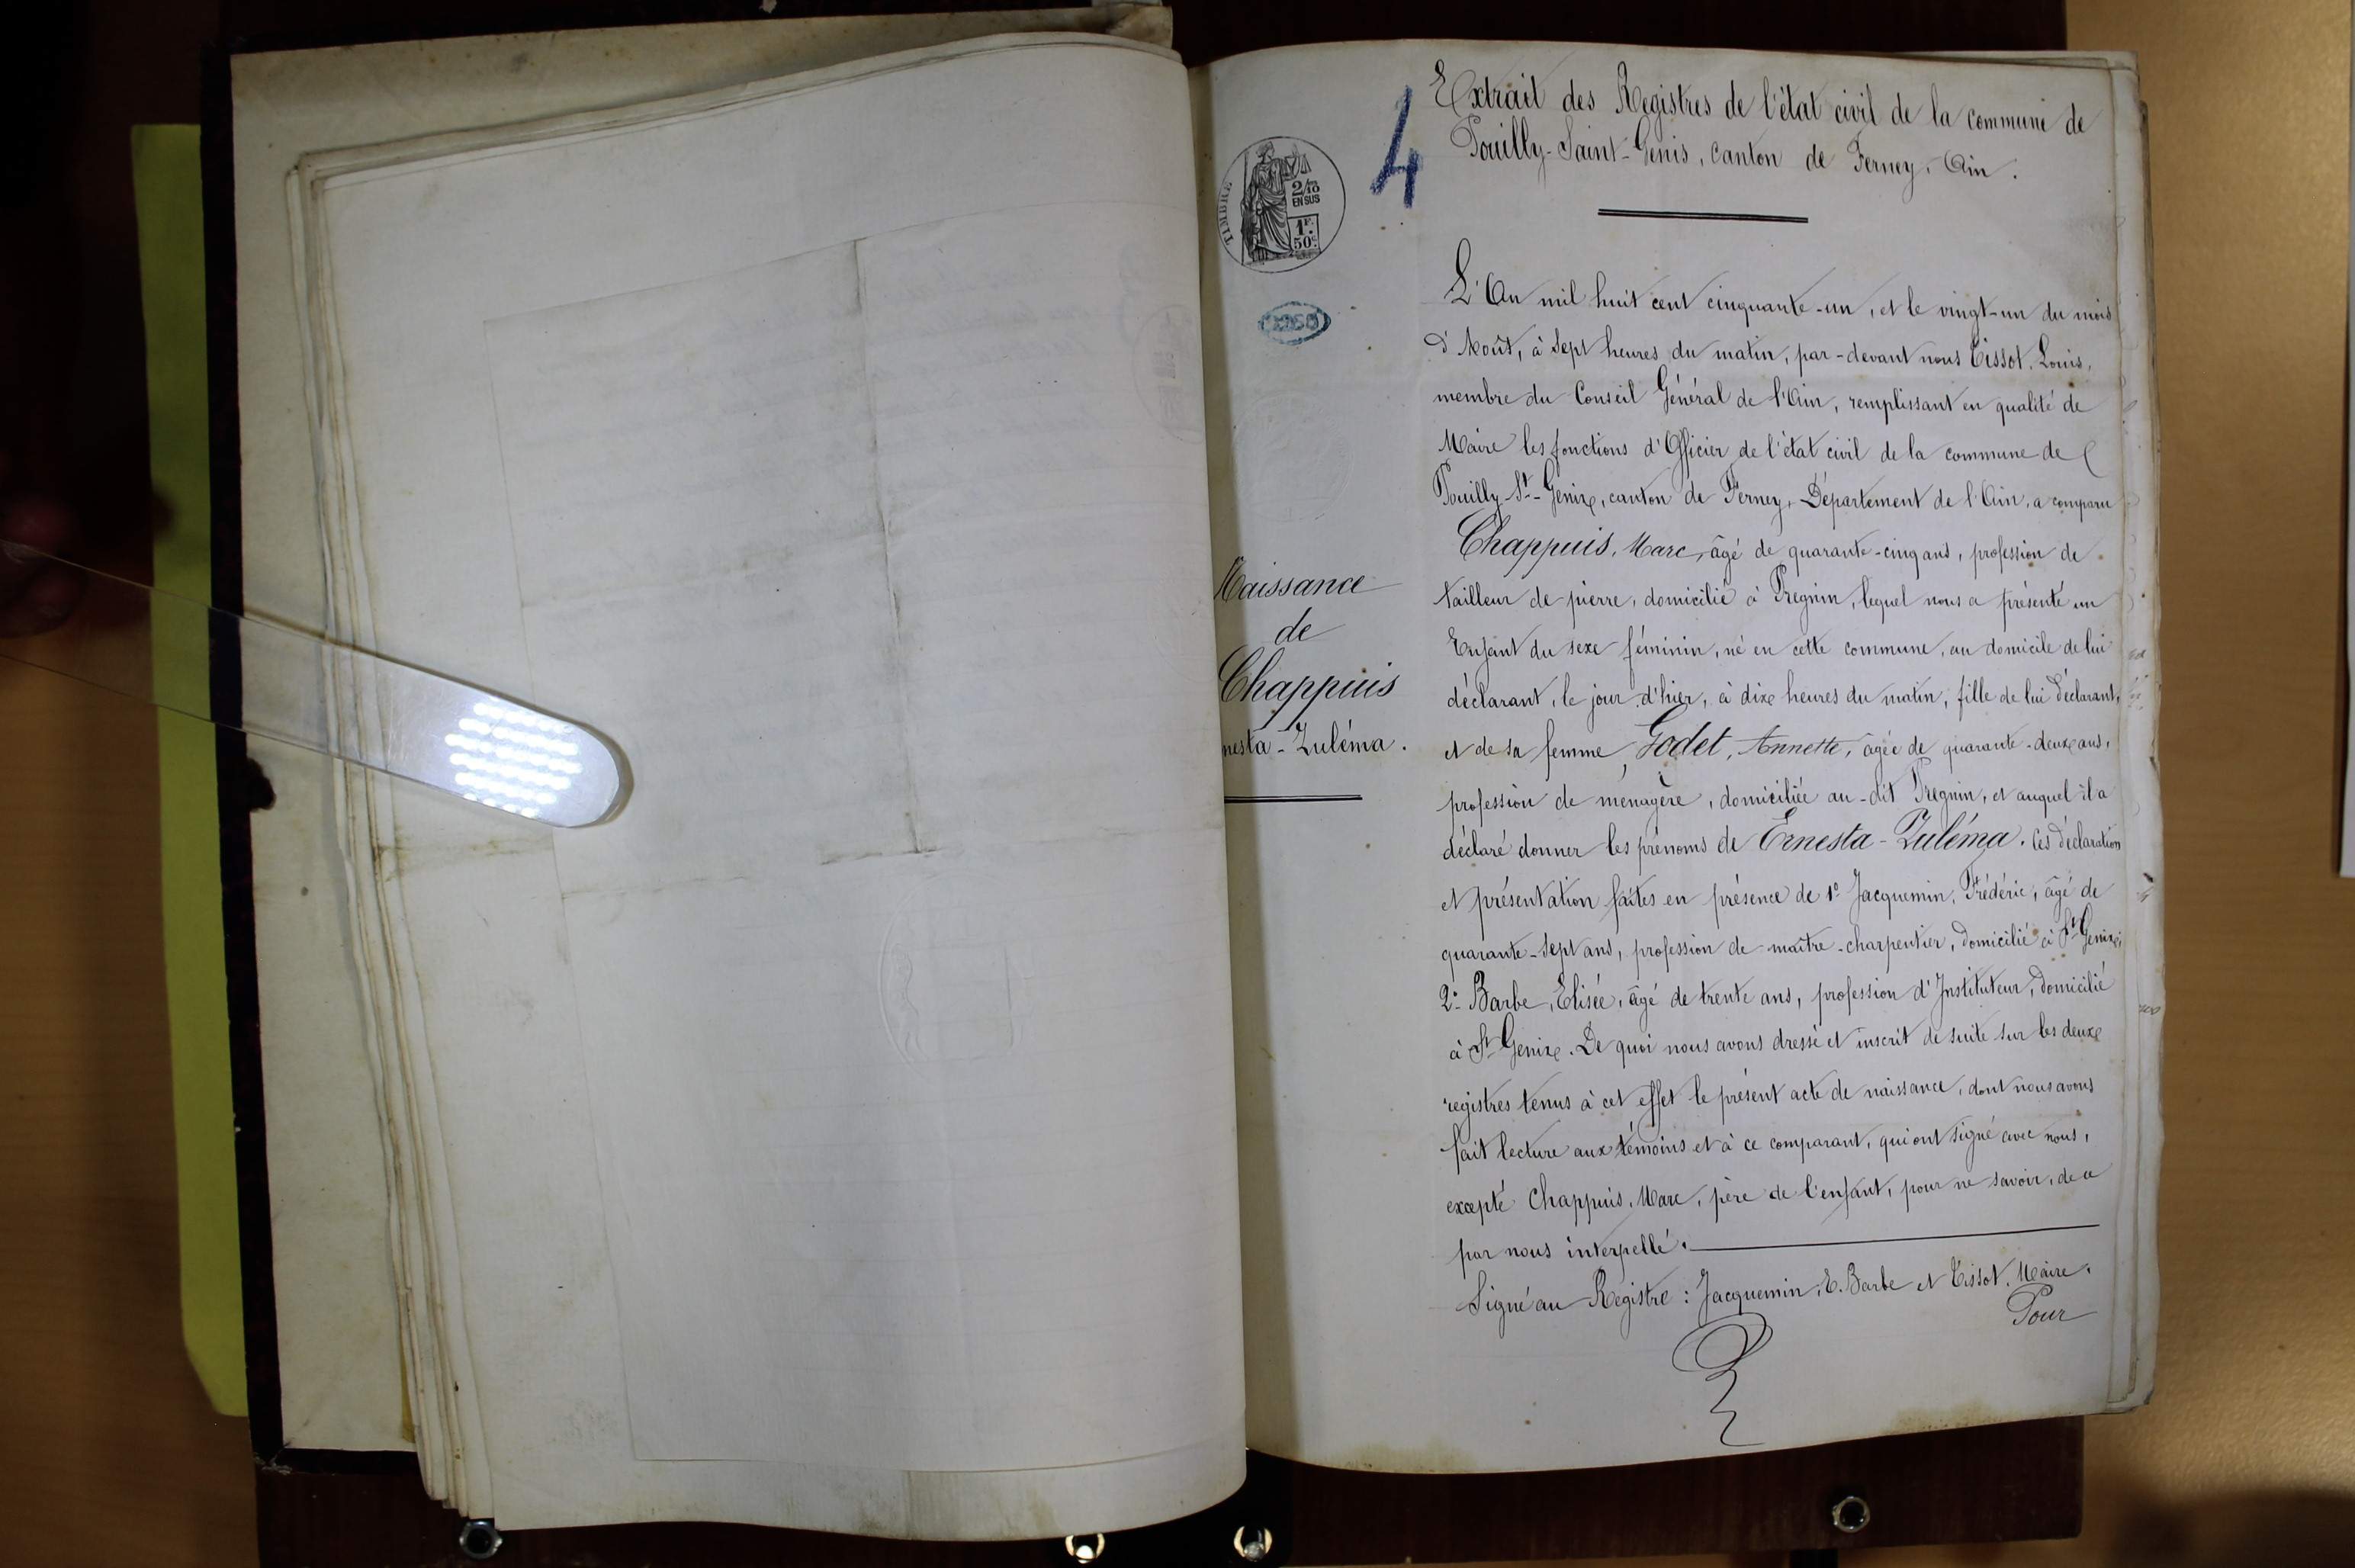 Extrait des Registres de l'état civil de la commune de
Pouilly-Saint-Genis, canton de Ferney, Ain.
4
TIMBRE
2/10
EN SUS
1F.
50c
L'An mil huit cent cinquante-un, et le vingt-un du mois
d'Août, à sept heures du matin, par-devant nous Tissot, Louis,
membre du Conseil Général de l'Ain, remplissant en qualité de
Maire les fonctions d'Officier de l'état civil de la commune de
Pouilly-St-Genix, canton de Ferney, Département de l'Ain, a comparu
Chappuis, Marc, âgé de quarante-cinq ans, profession de
tailleur de pierre, domicilié à Pregnin, lequel nous a présenté un
Enfant du sexe féminin, né en cette commune, au domicile de lui
déclarant, le jour d'hier, à dix heures du matin, fille de lui déclarant,
et de sa femme Godet, Annette, âgée de quarante-deux ans,
profession de ménagère, domiciliée au-dit Pregnin, et auquel il a
déclaré donner les prénoms de Ernesta-Zuléma. Ces déclaration
et présentation faites en présence de 1° Jacquemin, Frédéric, âgé de
quarante-sept ans, profession de maître-charpentier, domicilié à St Genix;
2° Barbe, Elisée, âgé de trente ans, profession d'Instituteur, domicilié
à St Genix. De quoi nous avons dressé et inscrit de suite sur les deux
registres tenus à cet effet le présent acte de naissance, dont nous avons
fait lecture aux témoins et à ce comparant, qui ont signé avec nous,
excepté Chappuis, Marc, père de l'enfant, pour ne savoir, de ce
par nous interpellé.
Signé au Registre : Jacquemin, E. Barbe et Tissot, Maire.
Pour
Naissance
de
Chappuis
nesta-Zuléma.